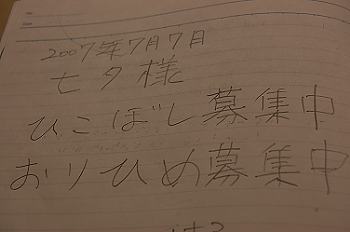 2007年7月7日
七夕様
ひこぼし募集中
おりひめ募集中